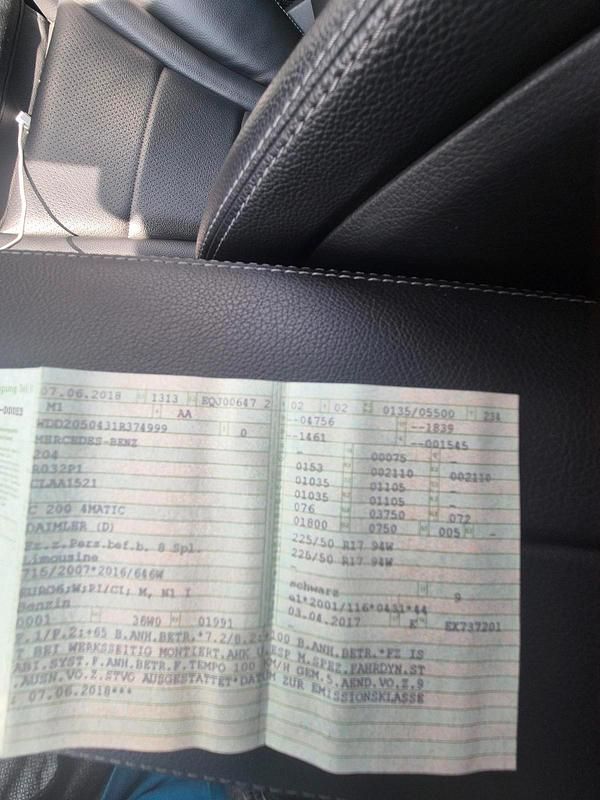 07.06.2018 1313 EQJ00647 2
M1 AA
WDD2050431R374999 0
MERCEDES-BENZ
204
R032P1
CLAA1521
C 200 4MATIC
DAIMLER (D)
Fz.z.Pers.bef.b. 8 Spl.
Limousine
715/2007*2016/646W
EURO6;W;PI/CI; M, N1 I
Benzin
0001 36W0 01991
02 02 0135/05500 234
--04756 --1839
--1461 --001545
- 00075 -
0153 002110 002110
01035 01105 -
01035 01105 -
076 03750 072
01800 0750 005 -
225/50 R17 94W
225/50 R17 94W
schwarz 9
e1*2001/116*0431*44
03.04.2017 E EX737201
F.1/F.2:+65 B.ANH.BETR.*7.2/8.2:+100 B.ANH.BETR.*FZ IS
T BEI WERKSSEITIG MONTIERT.AHK U.ESP M.SPEZ.FAHRDYN.ST
ABI.SYST.F.ANH.BETR.F.TEMPO 100 KM/H GEM.5.AEND.VO.Z.9
.AUSN.VO.Z.STVO AUSGESTATTET*DATUM ZUR EMISSIONSKLASSE
: 07.06.2018***